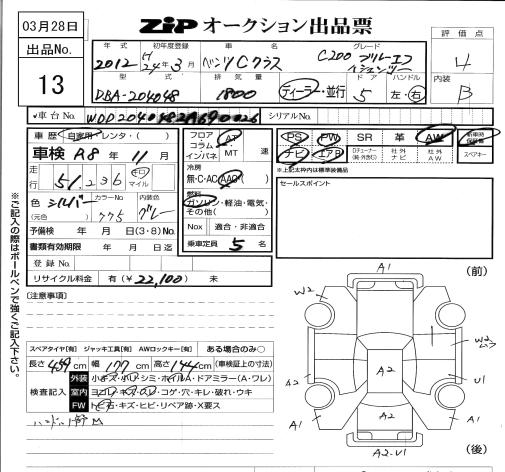 03月28日
出品No.
13
ZIP オークション出品票
評価点
4
内装
B
年式
2012
初年度登録
H24年3月
車名
ベンツCクラス
グレード
C200
型式
DBA-204048
排気量
1800
ディーラー・並行
ドア
5
ハンドル
左・右
車台No.
WDD2040482A690026
シリアルNo.
車歴 自家用 レンタ・( )
車検 R8年11月
走行
51,236
キロ マイル
色 シルバー
(元色)
カラーNo
775
内装色
グレー
予備検 年 月 日(3・8)No.
書類有効期限 年 月 日迄
登録No.
リサイクル料金 有(¥22,100) 未
フロア
コラム
インパネ
AT
MT
速
冷房
無・C・AC・AAC
燃料
ガソリン・軽油・電気・
その他( )
Nox 適合・非適合
乗車定員 5名
PS PW SR 革 AW
新車時保証書
ナビ エアB
社外ナビ
社外AW
スペアキー
※上記太枠内は標準装備品
セールスポイント
※ご記入の際はボールペンで強くご記入下さい。
[注意事項]
スペアタイヤ[有] ジャッキ工具[有] AWロックキー[有] ある場合のみ○
長さ 459cm 幅 177cm 高さ 144cm (車検証上の寸法)
検査記入
外装 小キズ・小ヘコ・シミ・ホイルA・ドアミラー(A・ワレ)
室内 ヨゴレ・キズ・スレ・コゲ・穴・キレ・破れ・ウキ
FW トビ石・キズ・ヒビ・リペア跡・X要ス
(前)
A1
W2
W2
ムラ
A2
U1
A2
A1
A2
A1
A2・U1
(後)